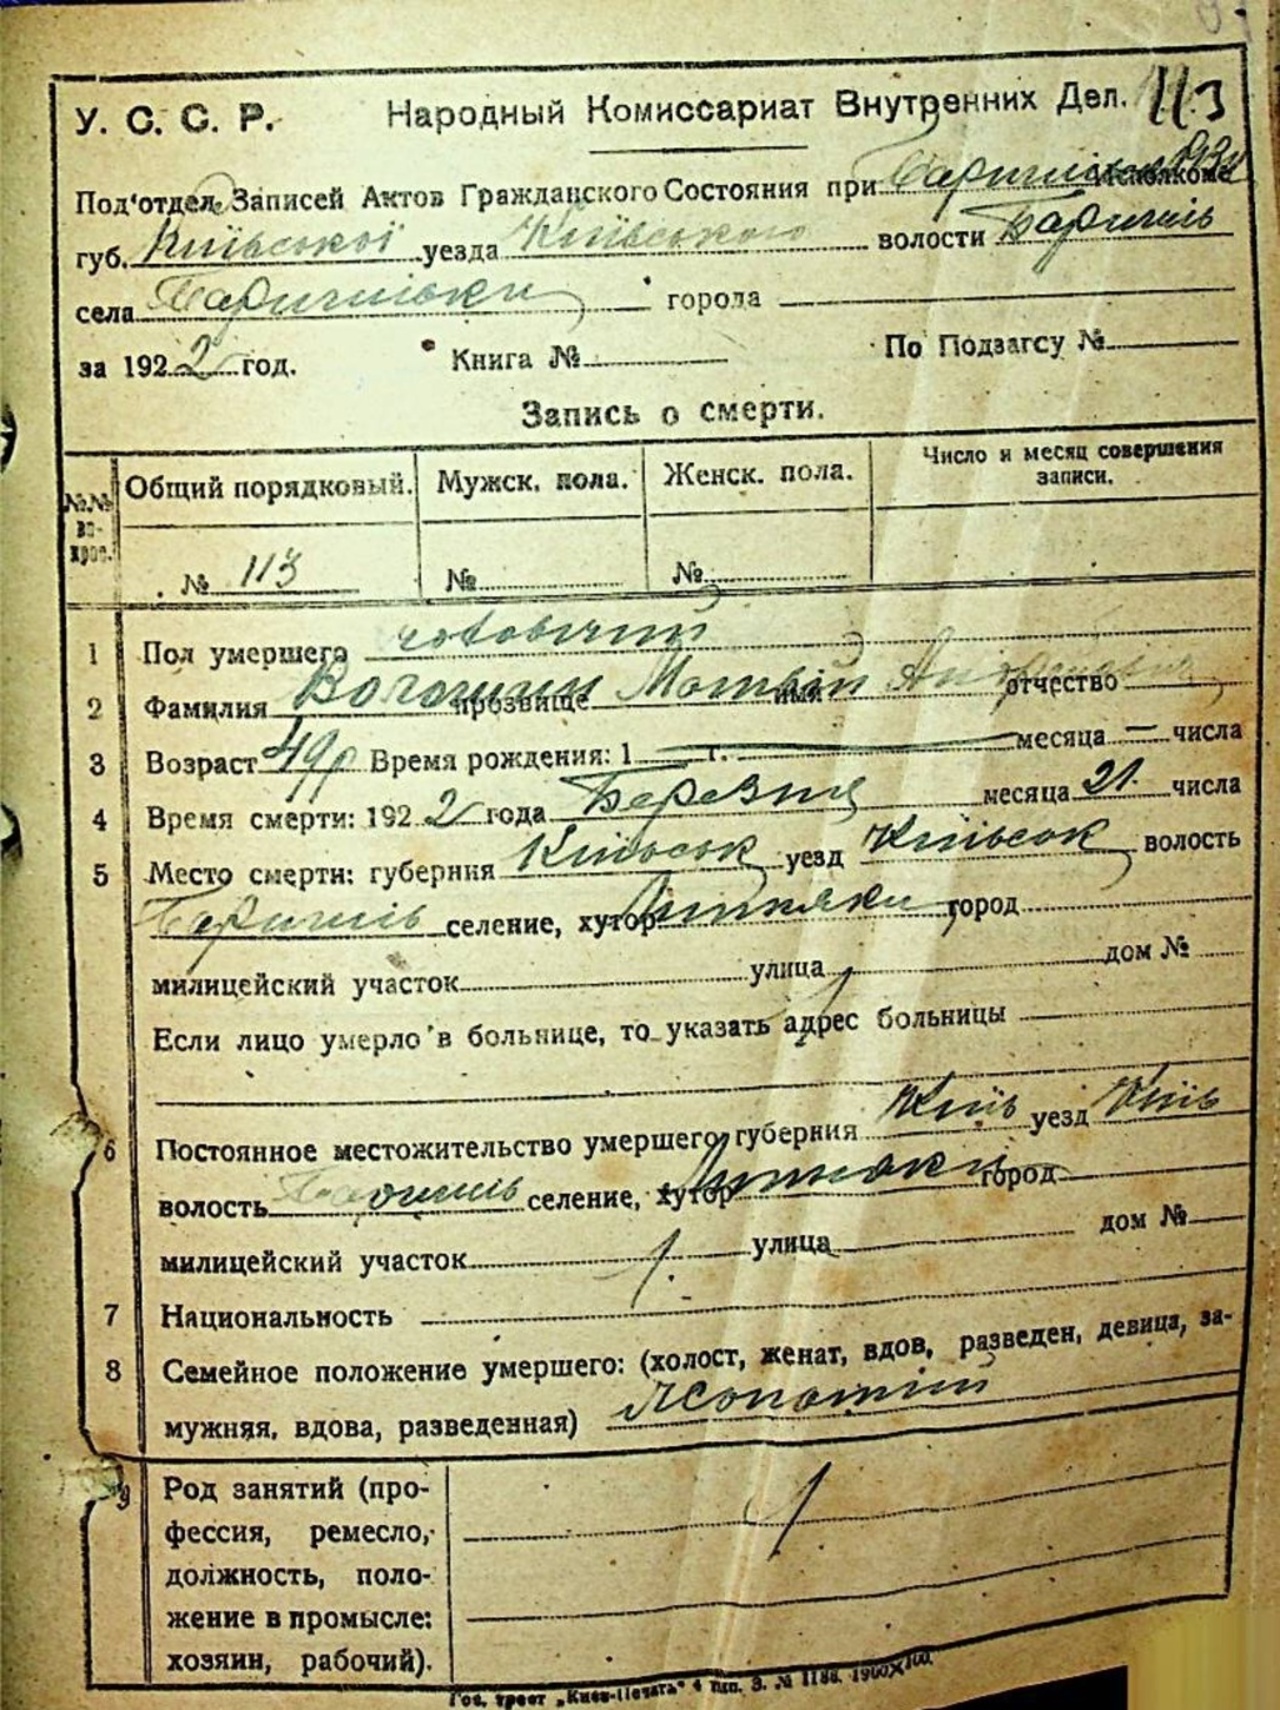 У. С. С. Р. Народный Комиссариат Внутренних Дел. 113
Под'отдел Записей Актов Гражданского Состояния при
губ. Київської уезда Київського волости Баришів
села Баришівки города
за 1922 год. Книга № По Подзагсу №
Запись о смерти.
№№ вопрос. Общий порядковый. Мужск. пола. Женск. пола. Число и месяц совершения записи.
№ 113 № №
1 Пол умершего чоловічий
2 Фамилия прозвище Мотвій имя отчество
3 Возраст 49 р Время рождения: 1 — г. — месяца — числа
4 Время смерти: 1922 года Березня месяца 21. числа
5 Место смерти: губерния Київськ уезд Київськ волость
Баришів селение, хутор Липняки город
милицейский участок улица дом №
Если лицо умерло в больнице, то указать адрес больницы
6 Постоянное местожительство умершего, губерния Київ уезд Київ
волость Баришів селение, хутор Липняки город
милицейский участок улица дом №
7 Национальность
8 Семейное положение умершего: (холост, женат, вдов, разведен, девица, за-
мужняя, вдова, разведенная) жонатий
9 Род занятий (про-
фессия, ремесло,
должность, поло-
жение в промысле:
хозяин, рабочий).
Гос. трест „Киев-Печать" 4 тип. З. № 1188. 1900×100.